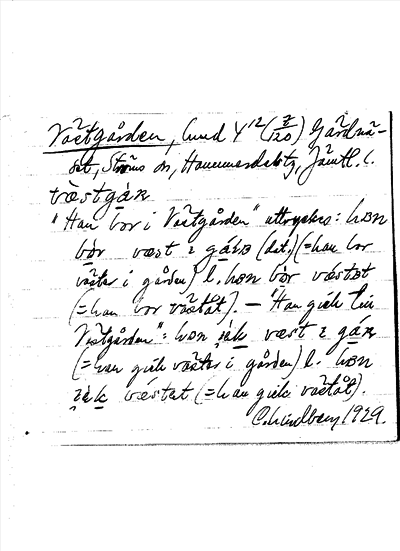 Västgården, lmd 4¹²(7/20) Gårdnä-
set, Ströms sn, Hammerdals tg, Jämtl. l.
væstgáɴ
"Han bor i Västgården" uttryckes: hɵn
bòr væst ɪ gáɴɵ (dat.) (= han bor
väster i gården) l. hɵn bòr væstɵt
(= han bor väståt). — "Han gick till
Västgården": hɵn jék væst ɪ gáɴ
(= han gick väster i gården) l. hɵn
jék væstɵt (= han gick väståt).
C. Lindberg 1929.